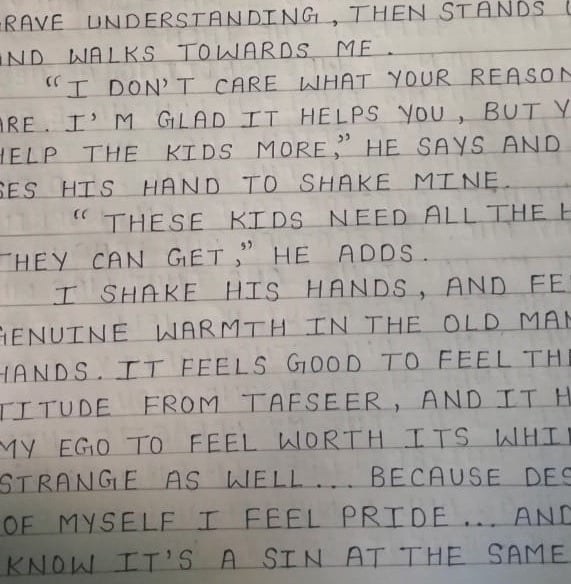 RAVE UNDERSTANDING, THEN STANDS
ND WALKS TOWARDS ME.
"I DON'T CARE WHAT YOUR REASON
ARE. I'M GLAD IT HELPS YOU, BUT Y
HELP THE KIDS MORE," HE SAYS AND
SES HIS HAND TO SHAKE MINE.
"THESE KIDS NEED ALL THE H
THEY CAN GET," HE ADDS.
I SHAKE HIS HANDS, AND FE
GENUINE WARMTH IN THE OLD MAN
HANDS. IT FEELS GOOD TO FEEL THI
TITUDE FROM TAFSEER, AND IT H
MY EGO TO FEEL WORTH ITS WHI
STRANGE AS WELL... BECAUSE DES
OF MYSELF I FEEL PRIDE... AND
KNOW IT'S A SIN AT THE SAME